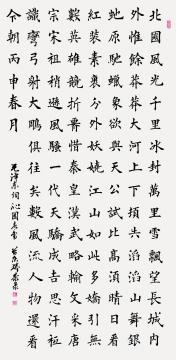 北國風光千里冰封萬里雪飄望長城內
外惟餘莽莽大河上下頓失滔滔山舞銀
蛇原馳蠟象欲與天公試比高須晴日看
紅裝素裹分外妖嬈江山如此多嬌引無
數英雄競折腰惜秦皇漢武略輸文采唐
宗宋祖稍遜風騷一代天驕成吉思汗祇
識彎弓射大鵰俱往矣數風流人物還看
今朝丙申春月
毛澤東詞沁園春雪